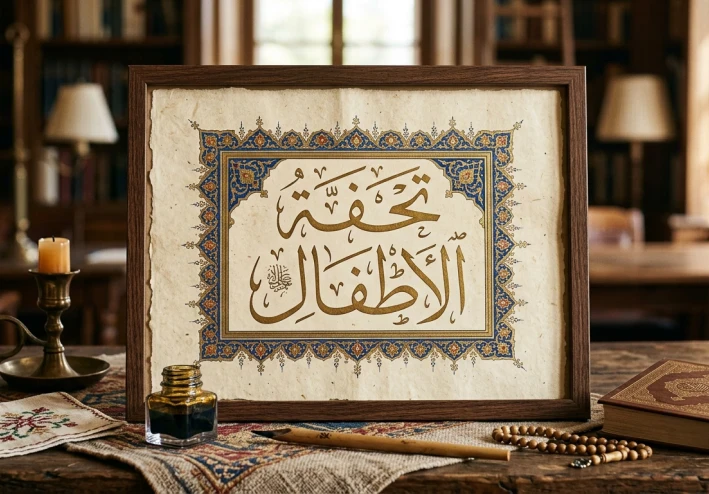 تحفة
الأطفال